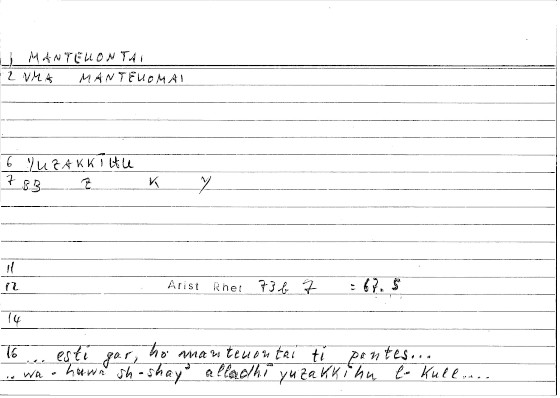 1 MANTEUONTAI
2 VMA MANTEUOMAI
6 YUZAKKĪHU
7 83 Z K Y
11
12 Arist Rhet 73b 7 = 67.5
14
16 ... esti gar, ho manteuontai ti pantes...
.. wa-huwa sh-shayʾ alladhī yuzakkīhu l-kull....